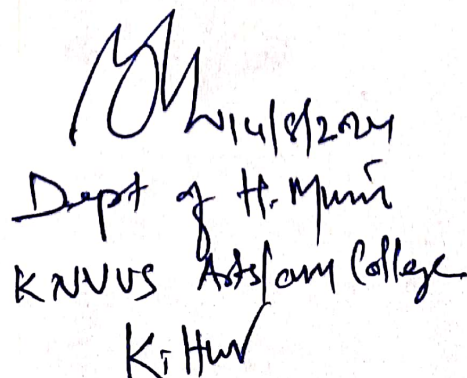 14/8/2024
Dept of H. Music
KNVVS Arts/Com College
Kittur